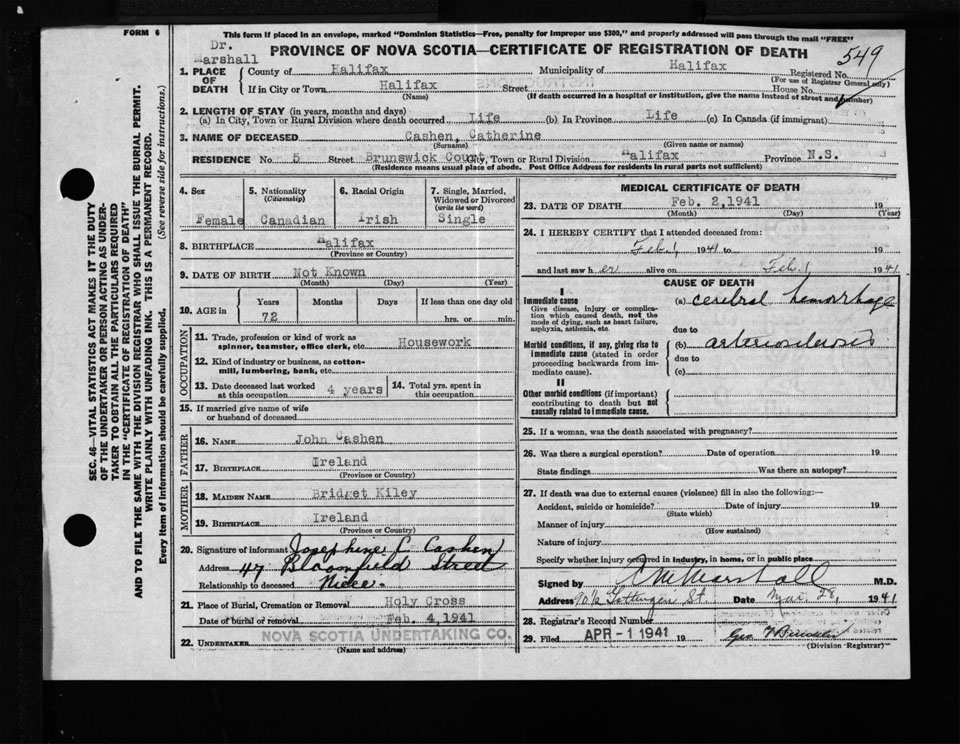 FORM 6
This form if placed in an envelope, marked "Dominion Statistics—Free, penalty for improper use $300," and properly addressed will pass through the mail "FREE"
Dr. Marshall
PROVINCE OF NOVA SCOTIA—CERTIFICATE OF REGISTRATION OF DEATH
549
1. PLACE OF DEATH
County of Halifax Municipality of Halifax Registered No.
(For use of Registrar General only)
If in City or Town Halifax Street House No.
(Name) (If death occurred in a hospital or institution, give the name instead of street and number)
2. LENGTH OF STAY (in years, months and days)
(a) In City, Town or Rural Division where death occurred Life (b) In Province Life (c) In Canada (if immigrant)
3. NAME OF DECEASED Cashen, Catherine
(Surname) (Given name or names)
RESIDENCE No. 5 Street Brunswick Court, Town or Rural Division Halifax Province N.S.
(Residence means usual place of abode. Post Office Address for residents in rural parts not sufficient)
4. Sex Female
5. Nationality (Citizenship) Canadian
6. Racial Origin Irish
7. Single, Married, Widowed or Divorced (write the word) Single
8. BIRTHPLACE Halifax
(Province or Country)
9. DATE OF BIRTH Not Known
(Month) (Day) (Year)
10. AGE in Years 72 Months Days If less than one day old hrs. or min.
OCCUPATION
11. Trade, profession or kind of work as spinner, teamster, office clerk, etc. Housework
12. Kind of industry or business, as cotton-mill, lumbering, bank, etc.
13. Date deceased last worked at this occupation 4 years
14. Total yrs. spent in this occupation
15. If married give name of wife or husband of deceased
FATHER
16. NAME John Cashen
17. BIRTHPLACE Ireland
(Province or Country)
MOTHER
18. MAIDEN NAME Bridget Kiley
19. BIRTHPLACE Ireland
(Province or Country)
20. Signature of informant Josephine C Cashen
Address 47 Bloomfield Street
Relationship to deceased Niece
21. Place of Burial, Cremation or Removal Holy Cross
Date of burial or removal Feb. 4,1941
22. UNDERTAKER NOVA SCOTIA UNDERTAKING CO.
(Name and address)
MEDICAL CERTIFICATE OF DEATH
23. DATE OF DEATH Feb. 2,1941 19
(Month) (Day) (Year)
24. I HEREBY CERTIFY that I attended deceased from:
Feb. 1, 1941 to 19
and last saw her alive on Feb 1 1941
CAUSE OF DEATH
I
Immediate cause (a) cerebral hemorrhage
Give disease, injury or complication which caused death, not the mode of dying, such as heart failure, asphyxia, asthenia, etc.
due to
Morbid conditions, if any, giving rise to immediate cause (stated in order proceeding backwards from immediate cause).
(b) arteriosclerosis
due to
(c)
II
Other morbid conditions (if important) contributing to death but not causally related to immediate cause.
25. If a woman, was the death associated with pregnancy?
26. Was there a surgical operation? Date of operation 19
State findings Was there an autopsy?
27. If death was due to external causes (violence) fill in also the following:—
Accident, suicide or homicide? Date of injury 19
(State which)
Manner of injury
(How sustained)
Nature of injury
Specify whether injury occurred in industry, in home, or in public place
Signed by C M Marshall M.D.
Address 90½ Gottingen St. Date Mar 28, 1941
28. Registrar's Record Number
29. Filed APR - 1 1941 19
(Division Registrar)
SEC. 46—VITAL STATISTICS ACT MAKES IT THE DUTY
OF THE UNDERTAKER OR PERSON ACTING AS UNDER-
TAKER TO OBTAIN ALL THE PARTICULARS REQUIRED
IN THE "CERTIFICATE OF REGISTRATION OF DEATH"
AND TO FILE THE SAME WITH THE DIVISION REGISTRAR WHO SHALL ISSUE THE BURIAL PERMIT.
WRITE PLAINLY WITH UNFADING INK. THIS IS A PERMANENT RECORD.
Every item of Information should be carefully supplied. (See reverse side for instructions.)